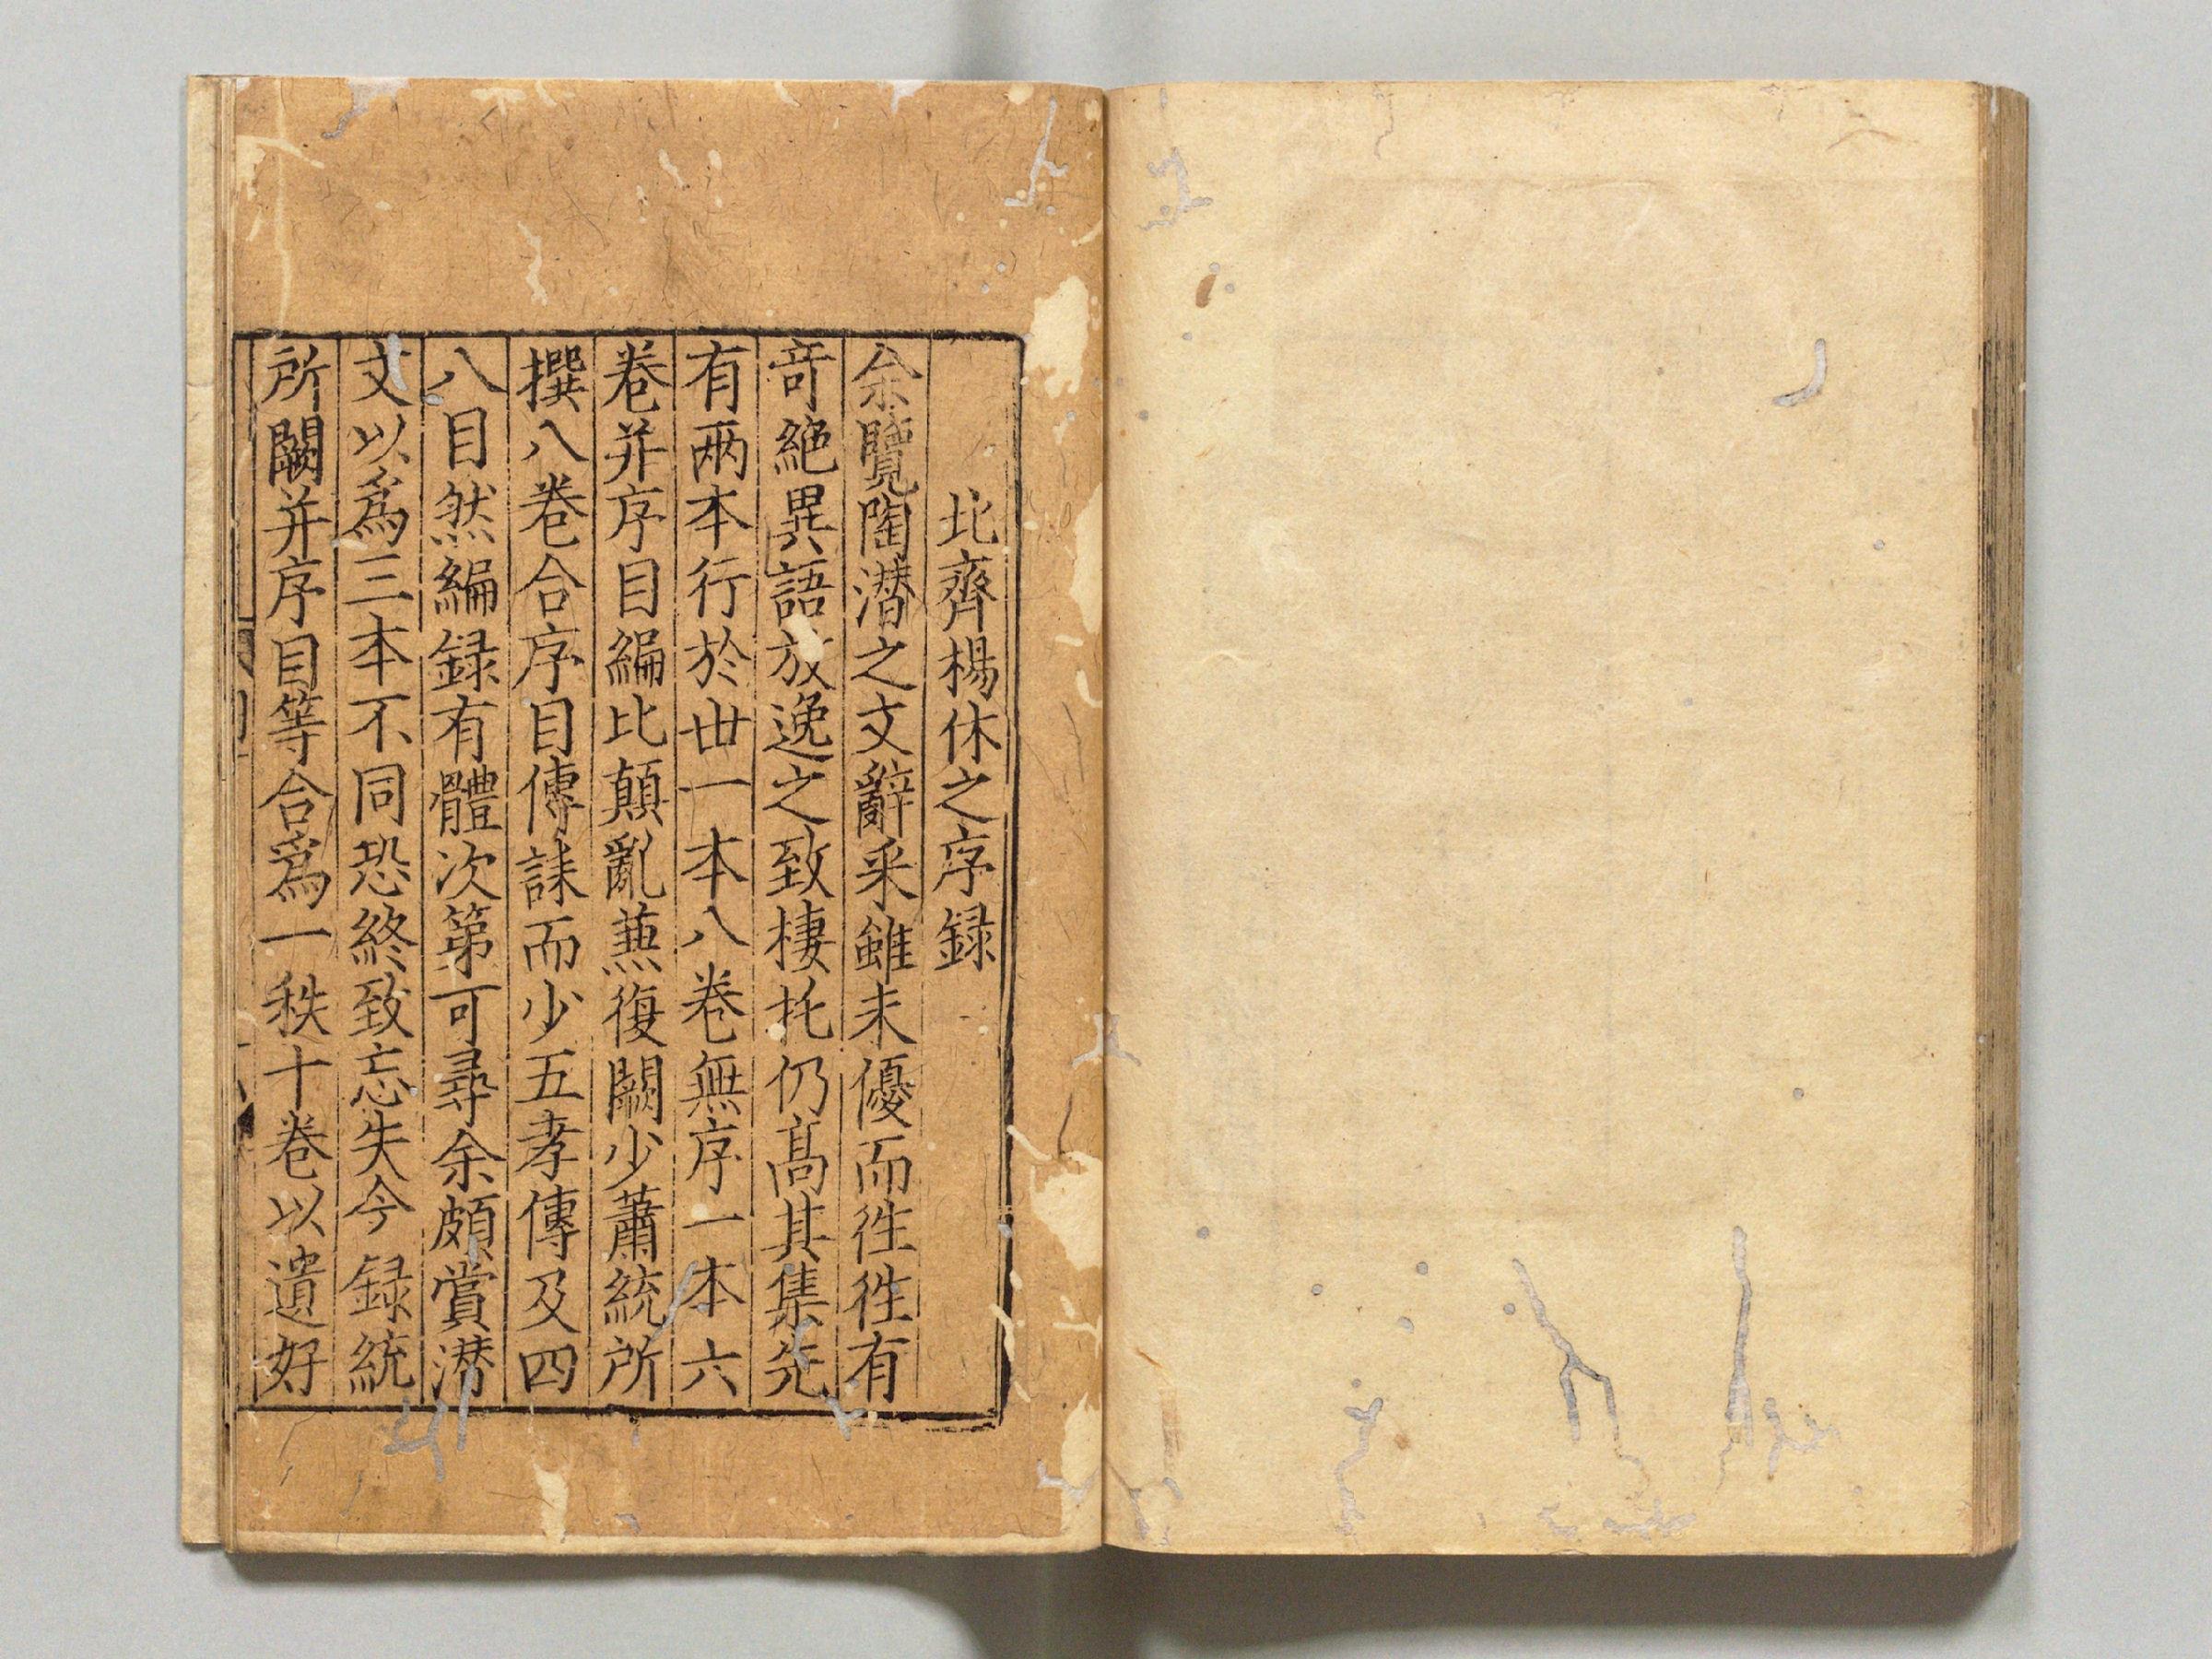 北齊楊休之序録
余覽陶潜之文辭采雖未優而徃徃有
竒絶異語放逸之致棲托仍髙其集先
有兩本行於丗一本八卷無序一本六
卷并序目編比顛亂蕪復闕少蕭統所
撰八卷合序目傳誄而少五孝傳及四
八目然編録有體次第可尋余頗賞潜
文以爲三本不同恐終致忘失今録統
所闕并序目等合爲一秩十卷以遺好